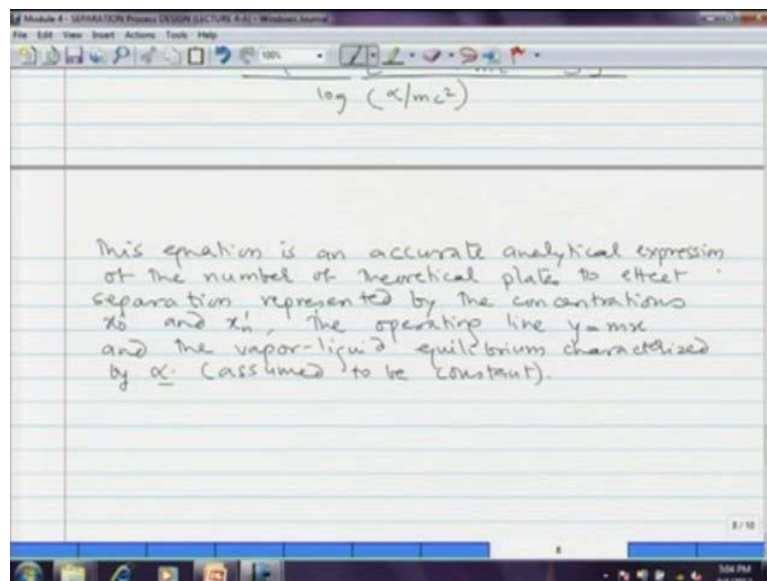 Module 4 - SEPARATION Process DESIGN (LECTURE 4-A) - Windows Journal
File Edit View Insert Actions Tools Help
100%
log (α/mc²)
This equation is an accurate analytical expression
of the number of theoretical plates to effect
separation represented by the concentrations
x₀' and xₙ', the operating line y=mx
and the vapor-liquid equilibrium characterized
by α. (assumed to be constant).
8/10
8
5:04 PM